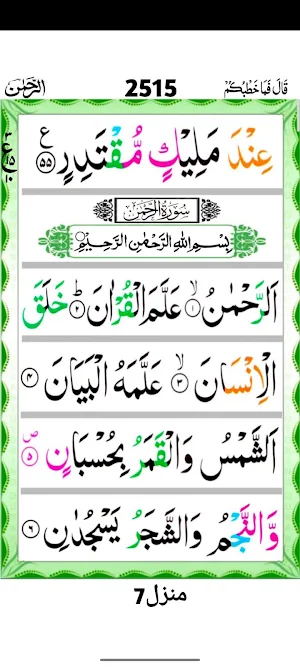 الرحمٰن 2515 قَالَ فَمَا خَطْبُكُمْ
عِنْدَ مَلِيْكٍ مُّقْتَدِرٍ ۝٥٥ ع
سُوْرَةُ الرَّحْمٰنِ
بِسْمِ اللهِ الرَّحْمٰنِ الرَّحِيْمِ
اَلرَّحْمٰنُ ۝١ۙ عَلَّمَ الْقُرْاٰنَ ۝٢ؕ خَلَقَ
الْاِنْسَانَ ۝٣ۙ عَلَّمَهُ الْبَيَانَ ۝٤
اَلشَّمْسُ وَالْقَمَرُ بِحُسْبَانٍ ۝٥ص
وَّالنَّجْمُ وَالشَّجَرُ يَسْجُدٰنِ ۝٦
منزل7